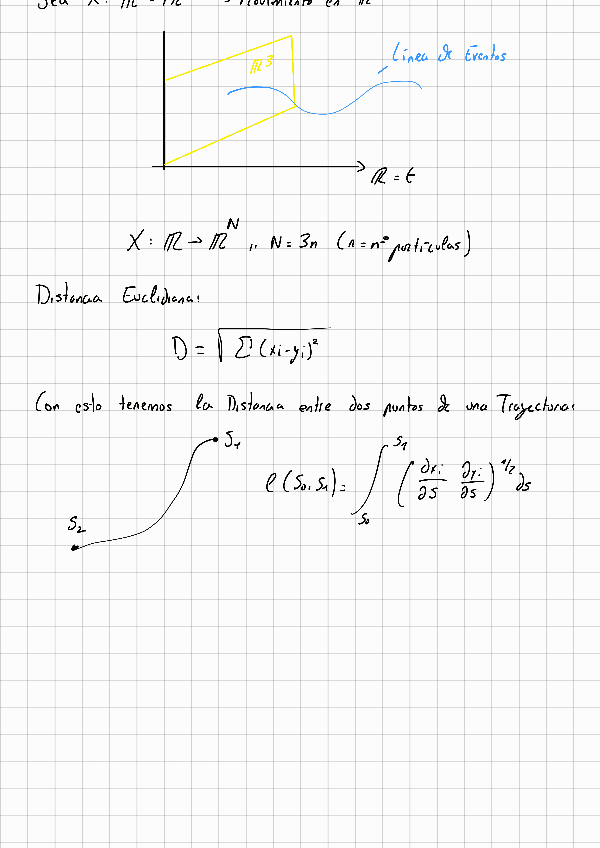 Línea de Eventos
ℝ³
ℝ = t
X : ℝ → ℝᴺ ,, N = 3n (n = nº partículas)
Distancia Euclidiana:
D = √Σ(xi-yi)²
Con esto tenemos la Distancia entre dos puntos de una Trayectoria:
S₁
S₂
ℓ(S₀, S₁) = ∫_{S₀}^{S₁} (∂xi/∂s ∂xi/∂s)^{1/2} ds